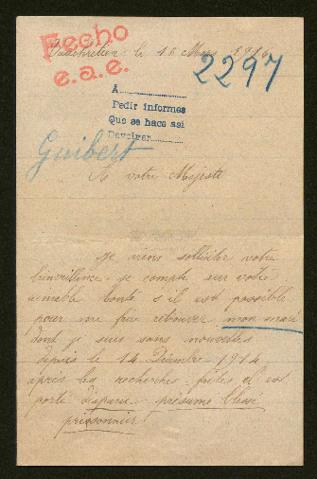 Fecho
e.a.e.
le 16 Mars 1916
2297
A
Pedir informes
Que se hace asi
Devolver
Guibert
A votre Majesté
Je viens solliciter votre
bienveillance. je compte sur votre
aimable bonté s'il est possible
pour me faire retrouver mon mari
dont je suis sans nouvelles
depuis le 14 Décembre 1914
après les recherches faites il est
porté disparu présumé blessé
prisonnier